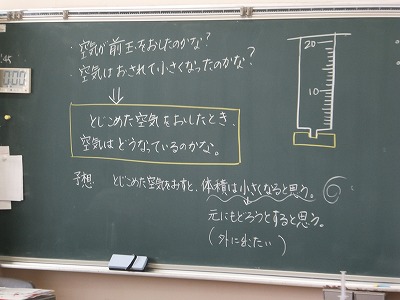 ・空気が前玉をおしたのかな?
・空気はおされて小さくなったのかな?
⇓
とじこめた空気をおしたとき、
空気はどうなっているのかな。
予想 とじこめた空気をおすと、体積は小さくなると思う。
元にもどろうとすると思う。
(外に出たい)
20
10
0:00